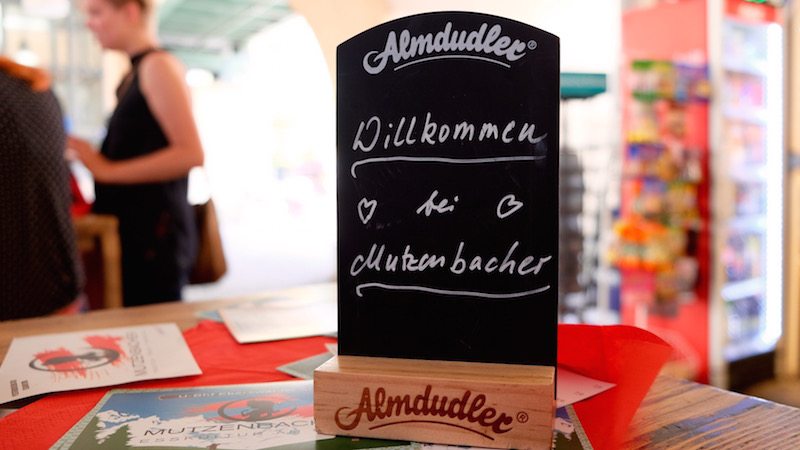 Almdudler®
Willkommen
♡ bei ♡
Mutzenbacher
Almdudler®
MUTZENBACHER
MUTZENBACHER
ESSKULTUR